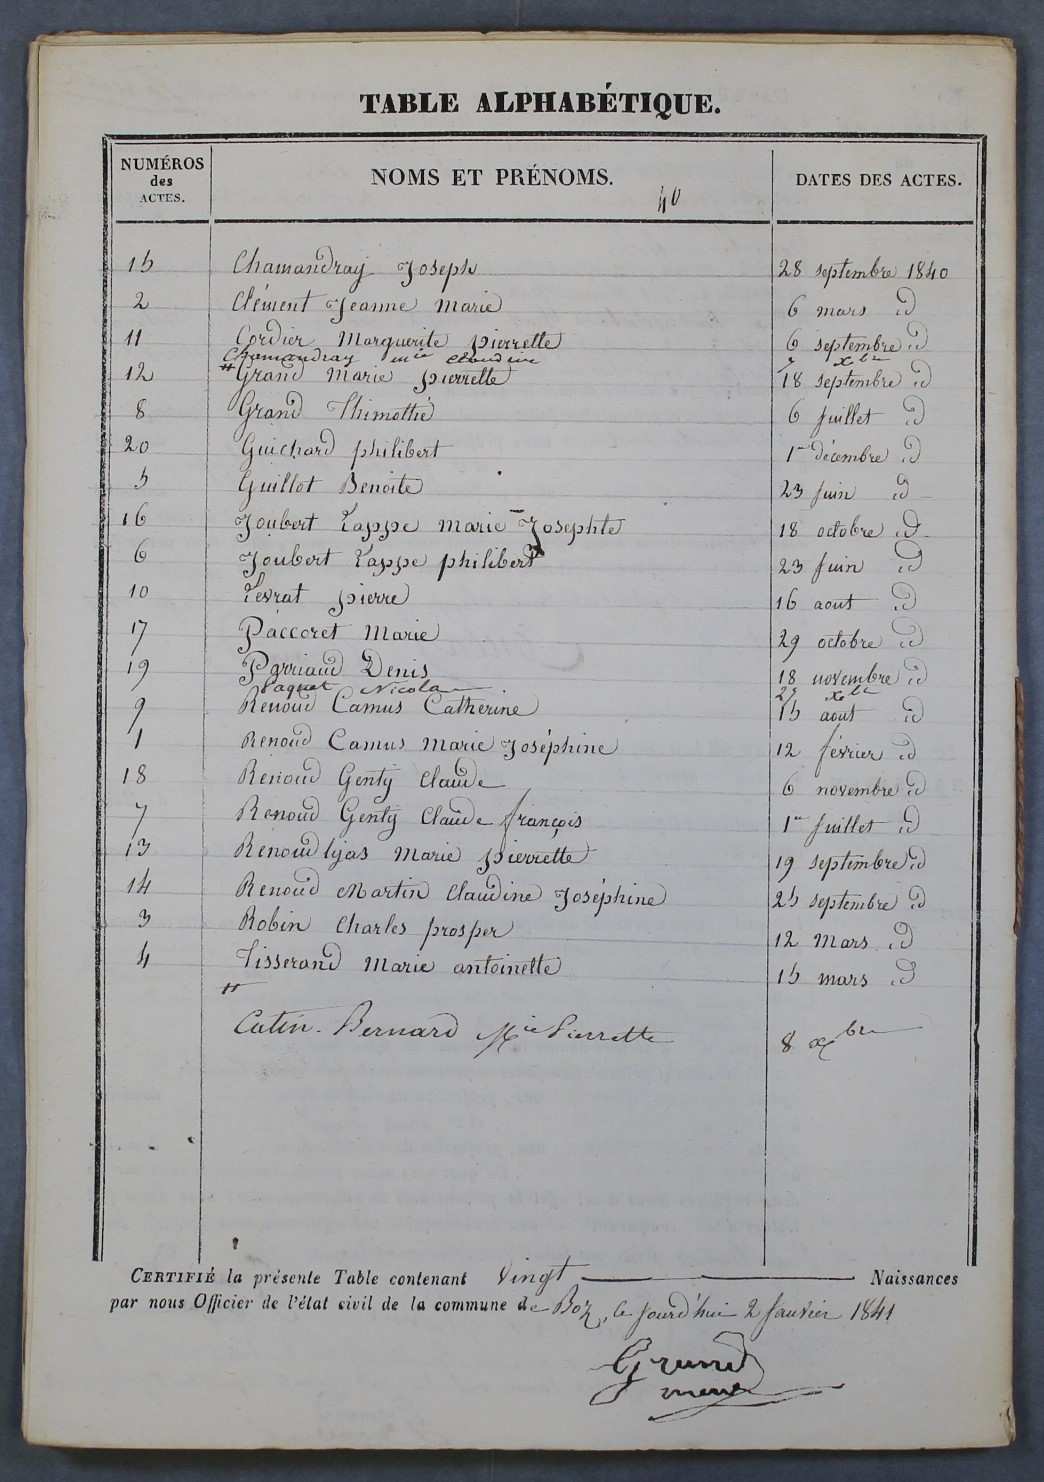 TABLE ALPHABÉTIQUE.
NUMÉROS des ACTES. NOMS ET PRÉNOMS. 40 DATES DES ACTES.
15 Chamandray Joseph 28 septembre 1840
2 Clément Jeanne Marie 6 mars d
11 Cordier Marguerite pierrette 6 septembre d
Chamandray mie claudine 7 xbre
12 # Grand Marie pierrette 18 septembre d
8 Grand Thimothé 6 juillet d
20 Guichard philibert 1er décembre d
5 Guillot Benoite 23 juin d
16 Joubert Lappe marie Josephte 18 octobre d
6 Joubert Lappe philibert 23 juin d
10 Levrat pierre 16 aout d
17 Paccoret Marie 29 octobre d
19 Parriaud Denis 18 novembre d
Paquet Nicolas 27 xbre
9 Renoud Camus Catherine 15 aout d
1 Renoud Camus Marie Joséphine 12 février d
18 Renoud Genty Claude 6 novembre d
7 Renoud Genty Claude françois 1er juillet d
13 Renoud lyas Marie pierrette 19 septembre d
14 Renoud Martin Claudine Joséphine 25 septembre d
3 Robin Charles prosper 12 Mars d
4 Tisserand Marie antoinette 15 mars d
#
Catin-Bernard Mie Pierrette 8 xbre
CERTIFIÉ la présente Table contenant Vingt Naissances
par nous Officier de l'état civil de la commune de Boz, ce jourd'hui 2 Janvier 1841
Grand
maire